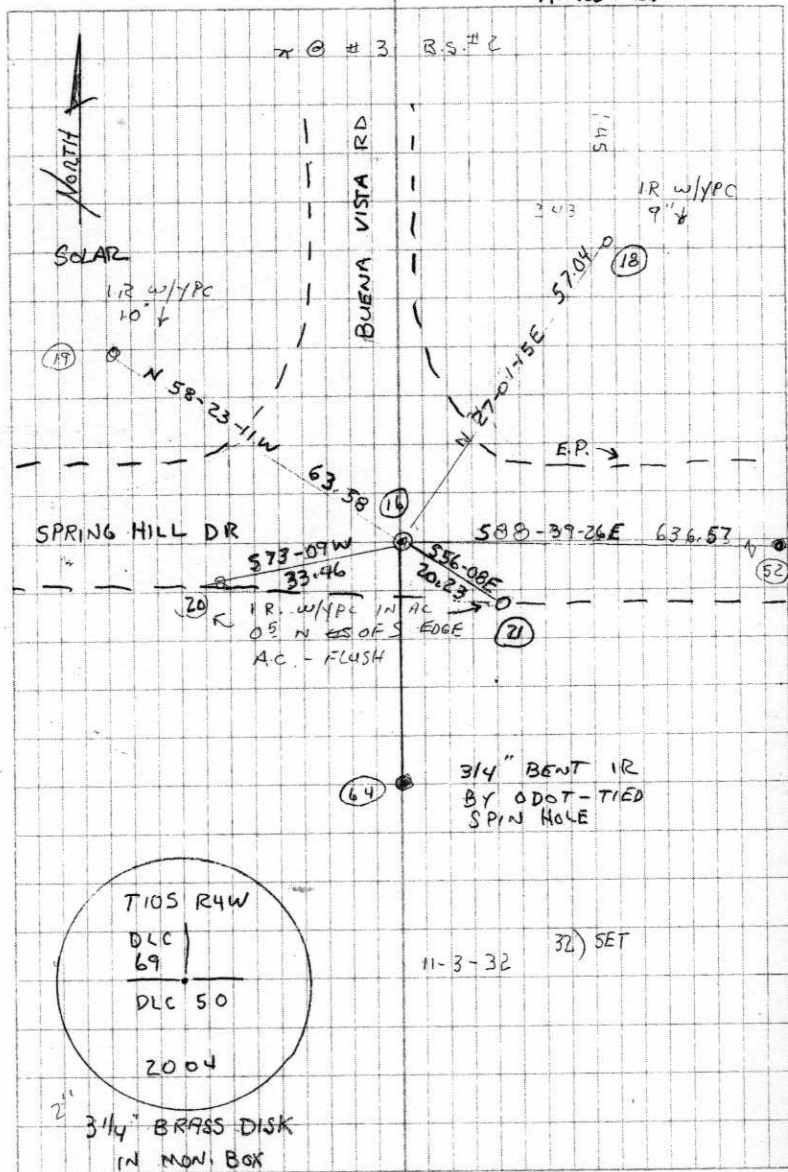 π @ # 3 B.S. # 2
NORTH
SOLAR
BUENA VISTA RD
1.45
343
I.R W/YPC
9"↓
18
57.04
N 27-01-15E
I.R W/YPC
10" ↓
19
N 58-23-11W
63.58
E.P. →
16
SPRING HILL DR
S73-09W
33.46
S56-08E
20.23
S88-39-26E 636.57
52
20
I.R. W/YPC IN AC
0.5 N OF S EDGE
A.C. - FLUSH
21
64
3/4" BENT IR
BY ODOT - TIED
SPIN HOLE
T10S R4W
DLC
69
DLC 50
2004
11-3-32
32) SET
2"
3 1/4" BRASS DISK
IN MON. BOX